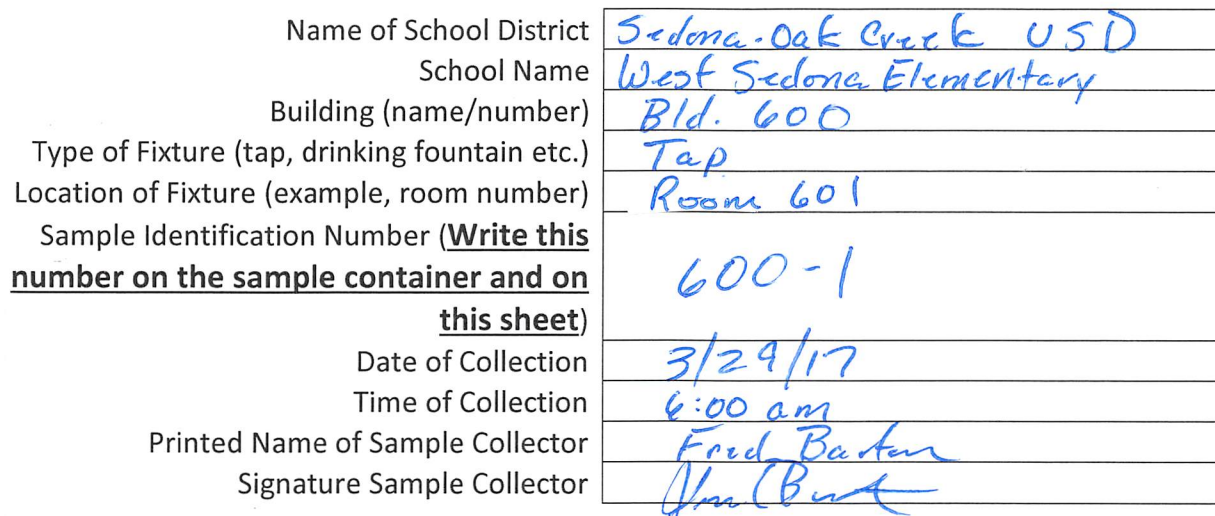 Name of School District Sedona-Oak Creek USD
School Name West Sedona Elementary
Building (name/number) Bld. 600
Type of Fixture (tap, drinking fountain etc.) Tap
Location of Fixture (example, room number) Room 601
Sample Identification Number (Write this
number on the sample container and on 600-1
this sheet)
Date of Collection 3/29/17
Time of Collection 6:00 am
Printed Name of Sample Collector Fred Barton
Signature Sample Collector